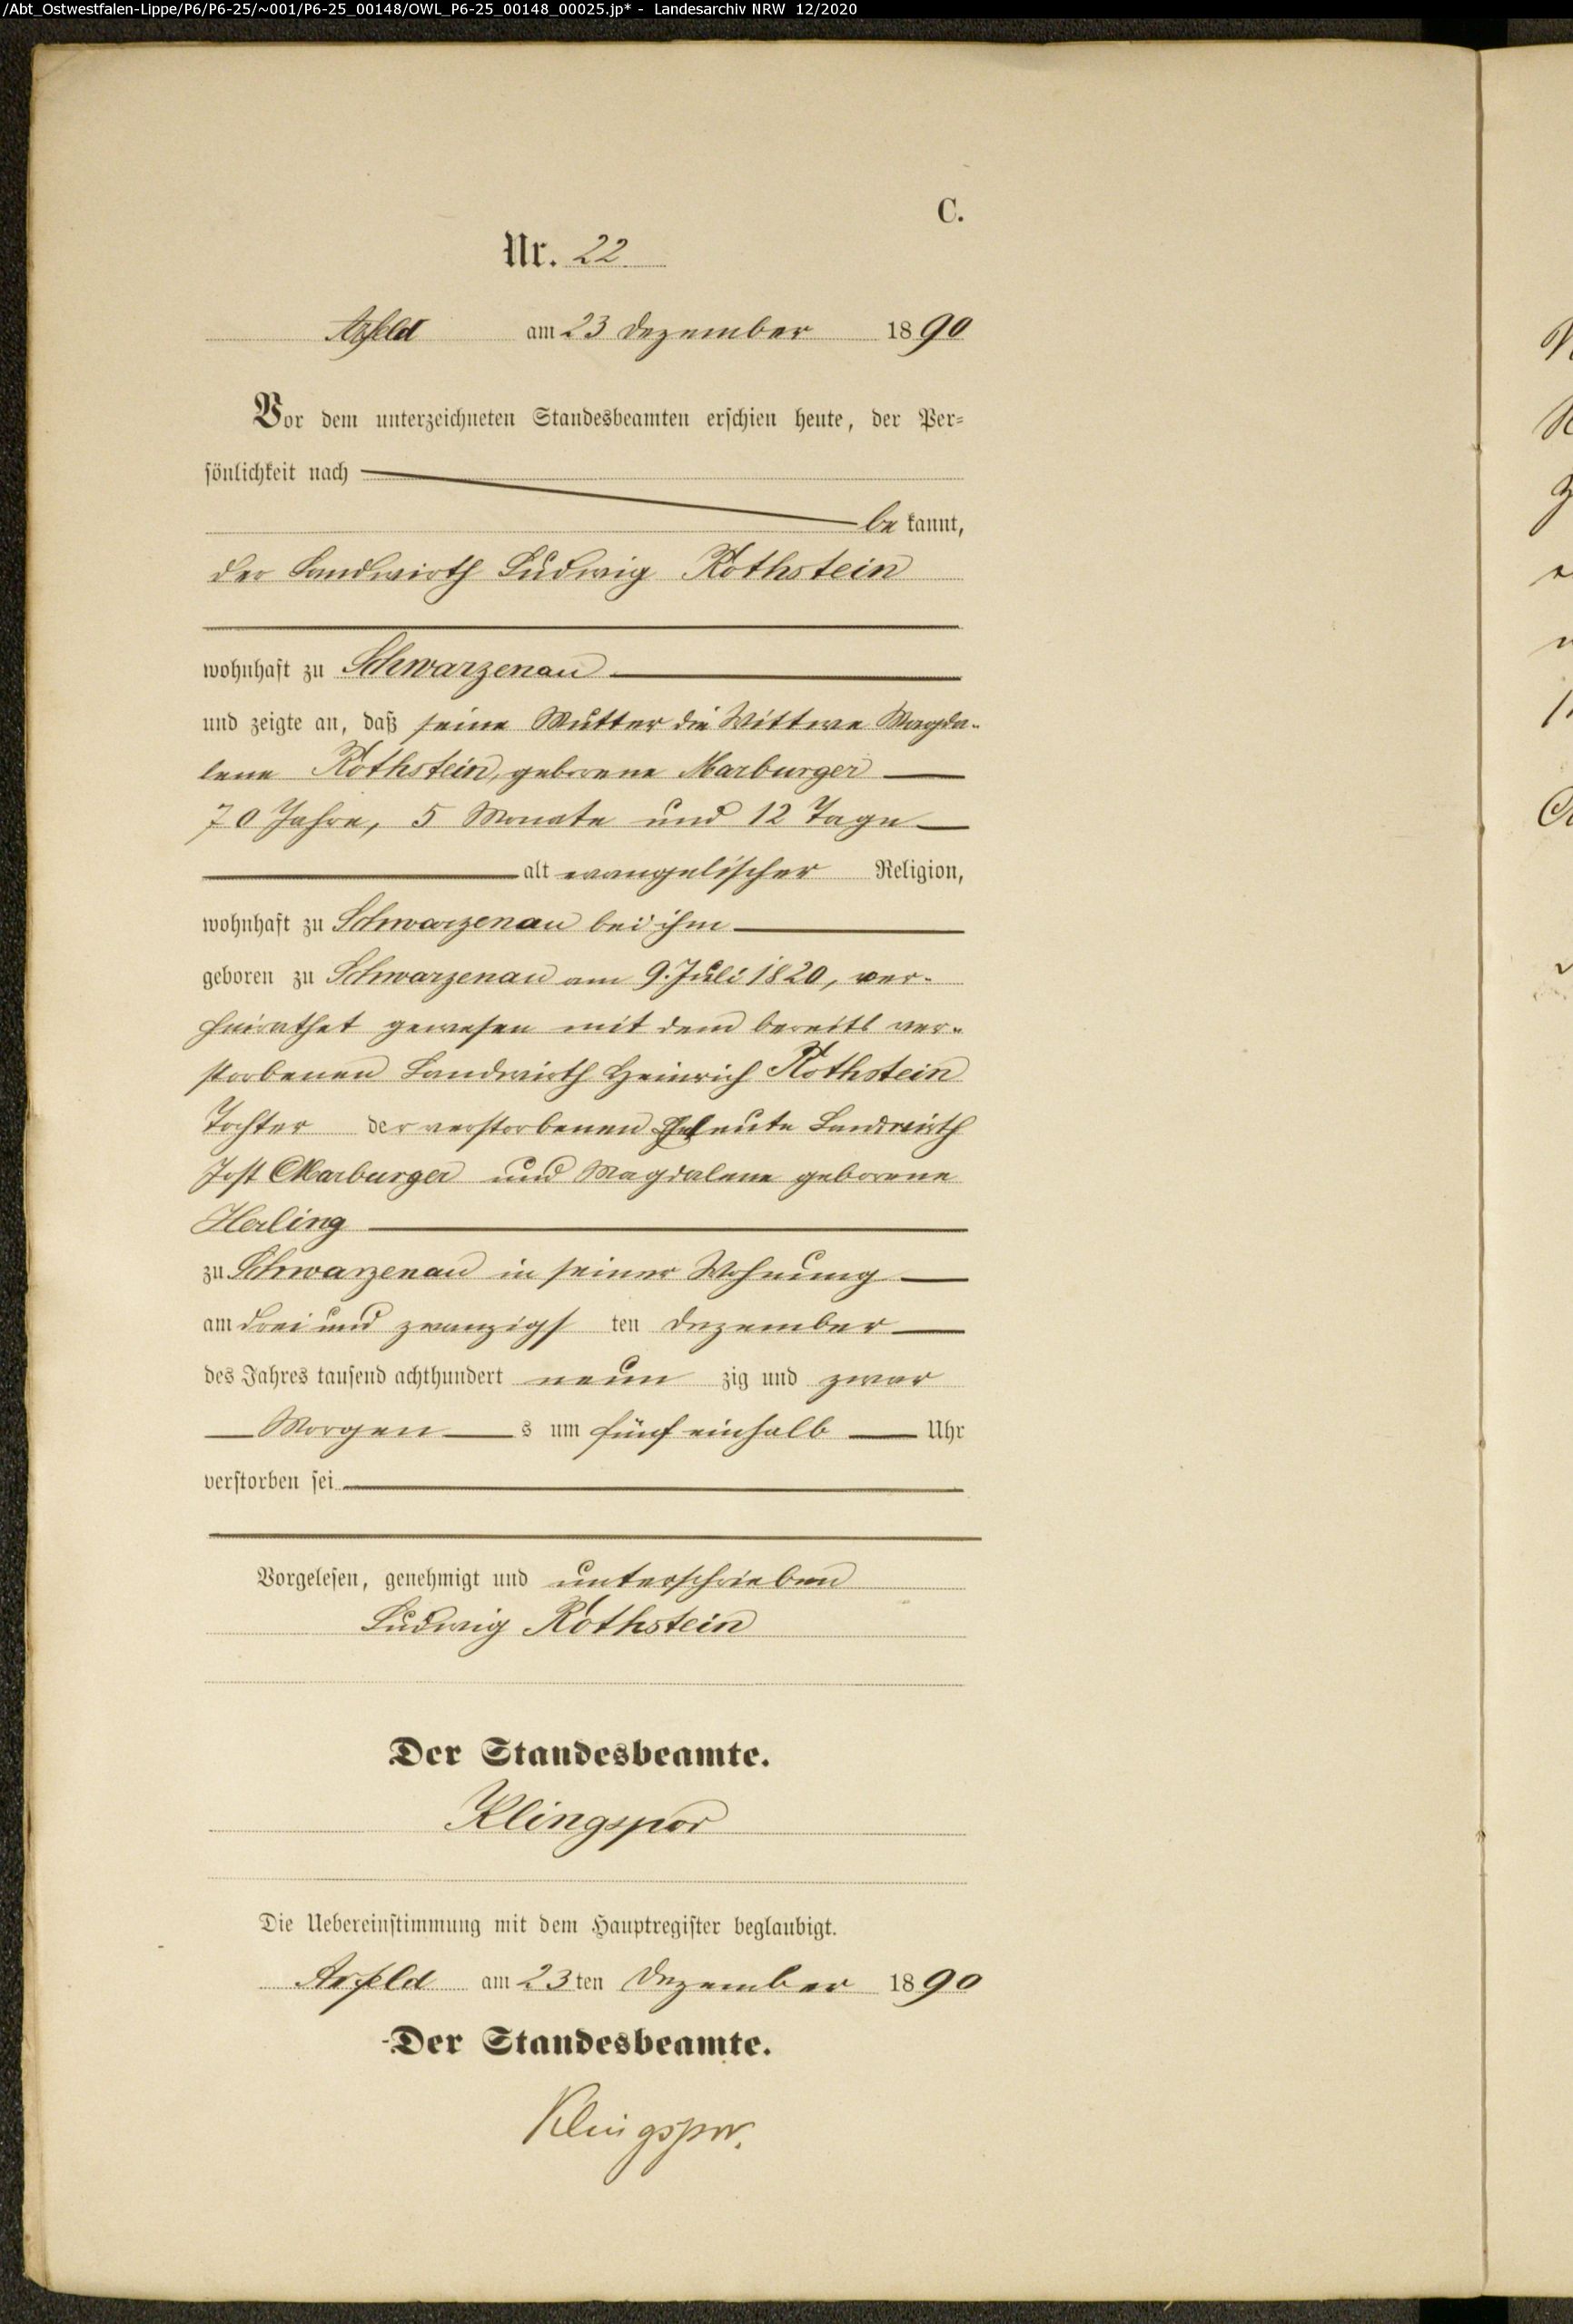 /Abt_Ostwestfalen-Lippe/P6/P6-25/~001/P6-25_00148/OWL_P6-25_00148_00025.jp* - Landesarchiv NRW 12/2020
C.
Nr. 22
Arfeld am 23 Dezember 1890
Vor dem unterzeichneten Standesbeamten erschien heute, der Per-
sönlichkeit nach
bekannt,
der Landwirth Ludwig Rothstein
wohnhaft zu Schwarzenau
und zeigte an, daß seine Mutter die Wittwe Magda-
lene Rothstein, geborene Marburger
70 Jahre, 5 Monate und 12 Tage
alt evangelischer Religion,
wohnhaft zu Schwarzenau bei ihm
geboren zu Schwarzenau am 9. Juli 1820, ver-
heirathet gewesen mit dem bereits ver-
storbenen Landwirth Heinrich Rothstein
Tochter der verstorbenen Eheleute Landwirth
Jost Marburger und Magdalene geborene
Herling
zu Schwarzenau in seiner Wohnung
am drei und zwanzigsten Dezember
des Jahres tausend achthundert neunzig und zwar
Morgens um fünf einhalb Uhr
verstorben sei
Vorgelesen, genehmigt und unterschrieben
Ludwig Rothstein
Der Standesbeamte.
Klingspor
Die Uebereinstimmung mit dem Hauptregister beglaubigt.
Arfeld am 23ten Dezember 1890
Der Standesbeamte.
Klingspor.